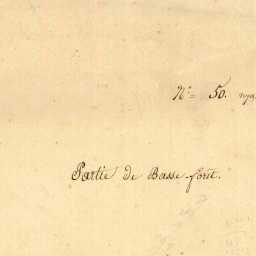 N.º = 50.
Partie de Basse forêt.